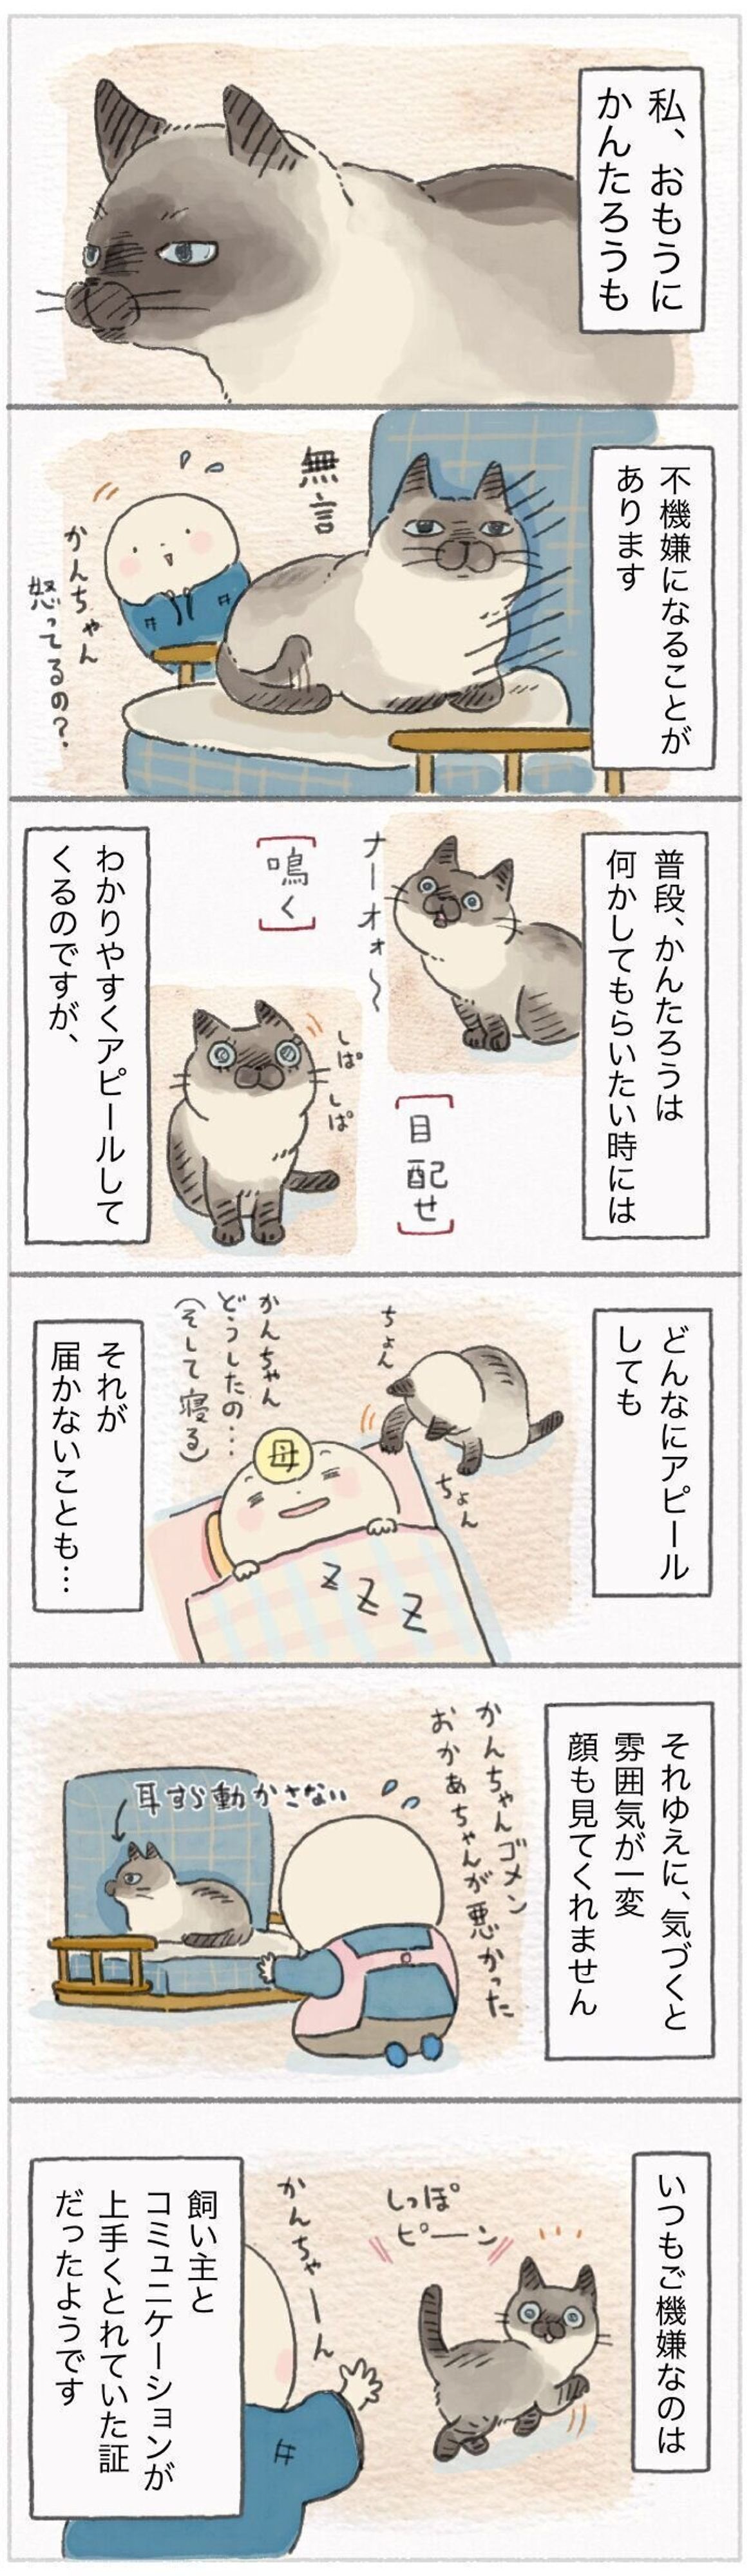 私、おもうに
かんたろうも
不機嫌になることが
あります
無言
かんちゃん
怒ってるの?
普段、かんたろうは
何かしてもらいたい時には
ナーオォ〜
［鳴く］
しぱ
しぱ
［目配せ］
わかりやすくアピールして
くるのですが、
どんなにアピール
しても
ちょん
ちょん
かんちゃん
どうしたの…
(そして寝る)
母
zzz
それが
届かないことも…
それゆえに、気づくと
雰囲気が一変
顔も見てくれません
かんちゃんゴメン
おかあちゃんが悪かった
耳すら動かさない
いつもご機嫌なのは
しっぽ
ピーーン
かんちゃーん
飼い主と
コミュニケーションが
上手くとれていた証
だったようです